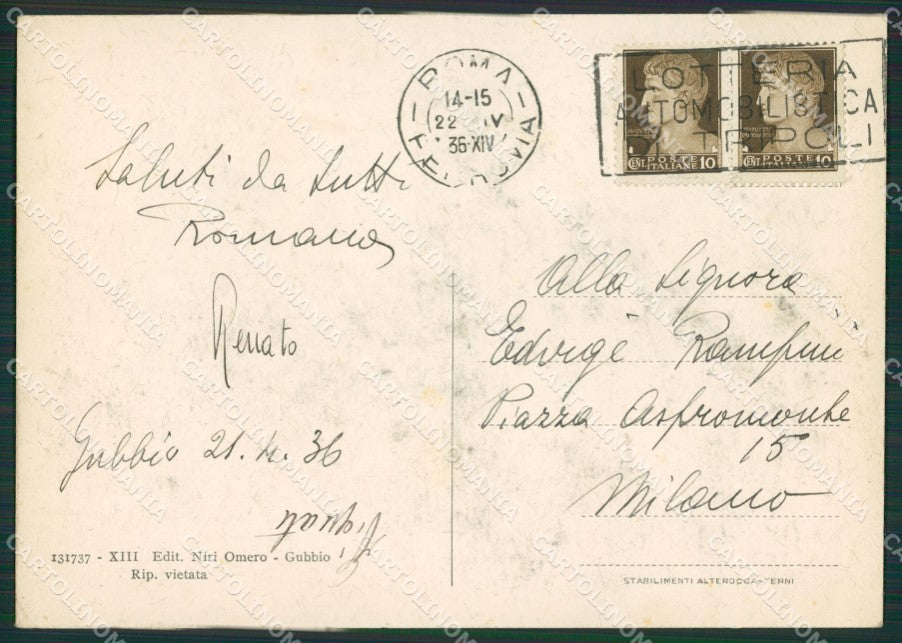 ROMA
FERROVIA
14-15
22 IV
36·XIV
LOTTERIA
AUTOMOBILISTICA
DI TRIPOLI
CENT. POSTE ITALIANE 10
CENT. POSTE ITALIANE 10
Saluti da tutti
Romana
Renato
Gubbio 21.4.36
Alla Signora
Edvige Rampini
Piazza Aspromonte
15
Milano
131737 - XIII Edit. Niri Omero - Gubbio
Rip. vietata
STABILIMENTI ALTEROCCA-TERNI
CARTOLINOMANIA